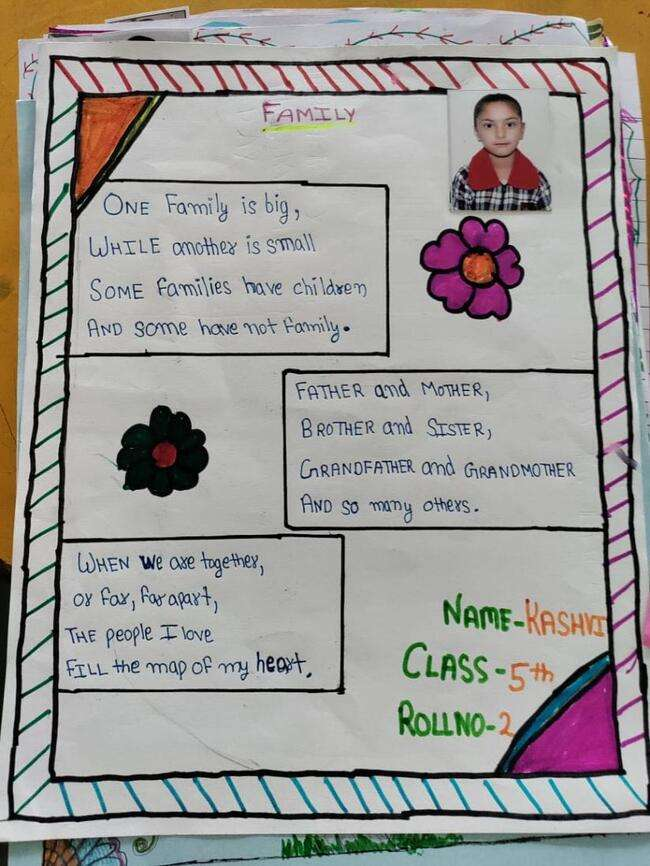 FAMILY
ONE Family is big,
WHILE another is small
SOME families have children
AND some have not family.
FATHER and MOTHER,
BROTHER and SISTER,
GRANDFATHER and GRANDMOTHER
AND so many others.
WHEN we are together,
or far, far apart,
THE people I love
FILL the map of my heart.
NAME-KASHVI
CLASS-5th
ROLLNO-2